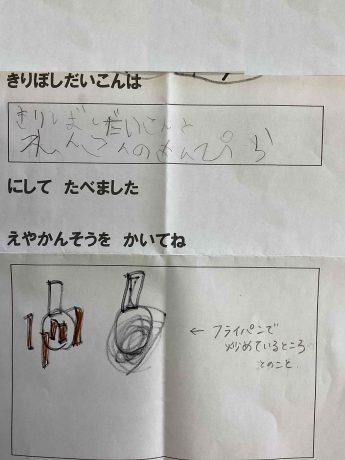 きりぼしだいこんは
きりぼしだいこんと
れんこんのきんぴら
にして たべました
えやかんそうを かいてね
← フライパンで
炒めているところ
とのこと